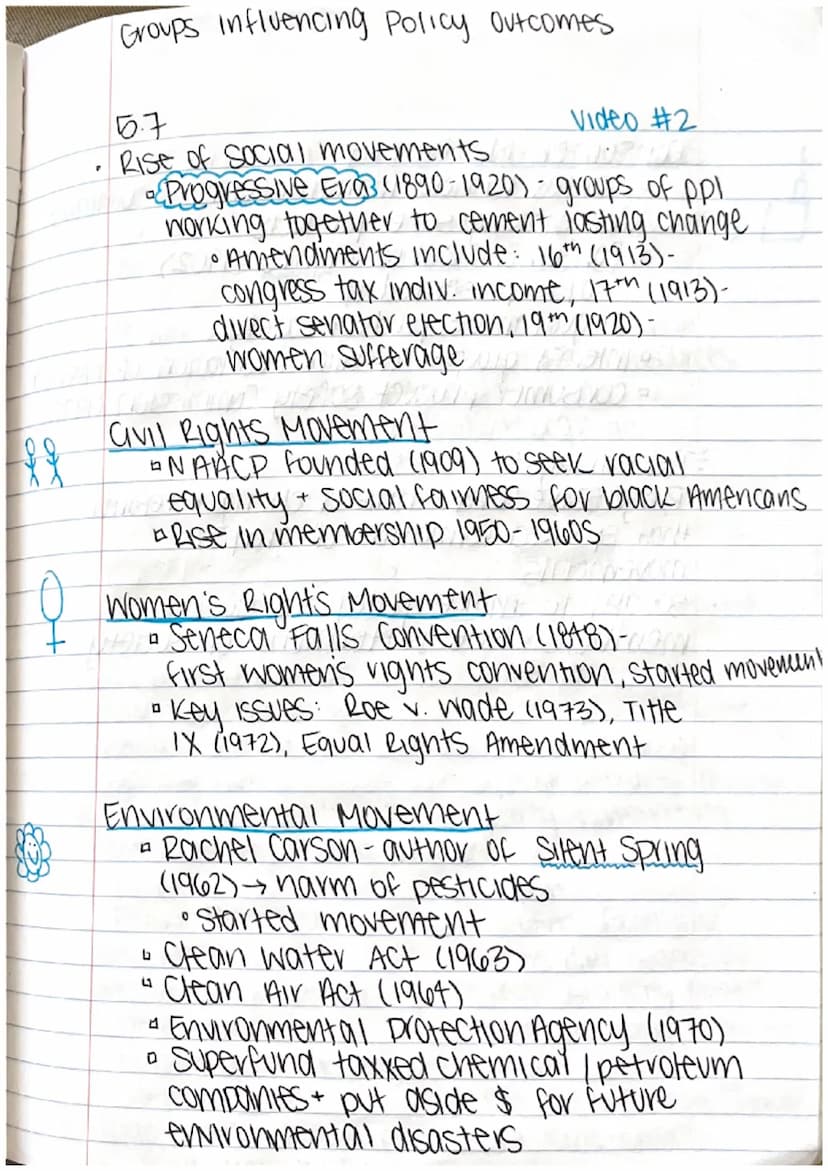 Groups influencing Policy outcomes
5.7
Video #2
• Rise of social movements
▫ Progressive Era (1890-1920) - groups of ppl
working together to cement lasting change
• Amendments include: 16th (1913)-
congress tax indiv. income, 17th (1913)-
direct senator election, 19th (1920)-
women sufferage
Civil Rights Movement
▫ NAACP founded (1909) to seek racial
equality + social fairness for black Americans
▫ Rise in membership 1950-1960s
Women's Rights Movement
▫ Seneca Falls Convention (1848)-
first women's rights convention, started movement
▫ Key issues: Roe v. Wade (1973), Title
IX (1972), Equal Rights Amendment
Environmental Movement
▫ Rachel Carson - author of Silent Spring
(1962) → harm of pesticides
• Started movement
▫ Clean Water Act (1963)
▫ Clean Air Act (1964)
▫ Environmental Protection Agency (1970)
▫ Superfund taxxed chemical / petroleum
companies + put aside $ for future
environmental disasters